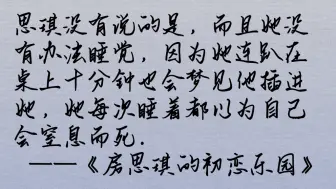 思琪没有说的是，而且她没
有办法睡觉，因为她连趴在
桌上十分钟也会梦见他插进
她，她每次睡着都以为自己
会窒息而死.
——《房思琪的初恋乐园》